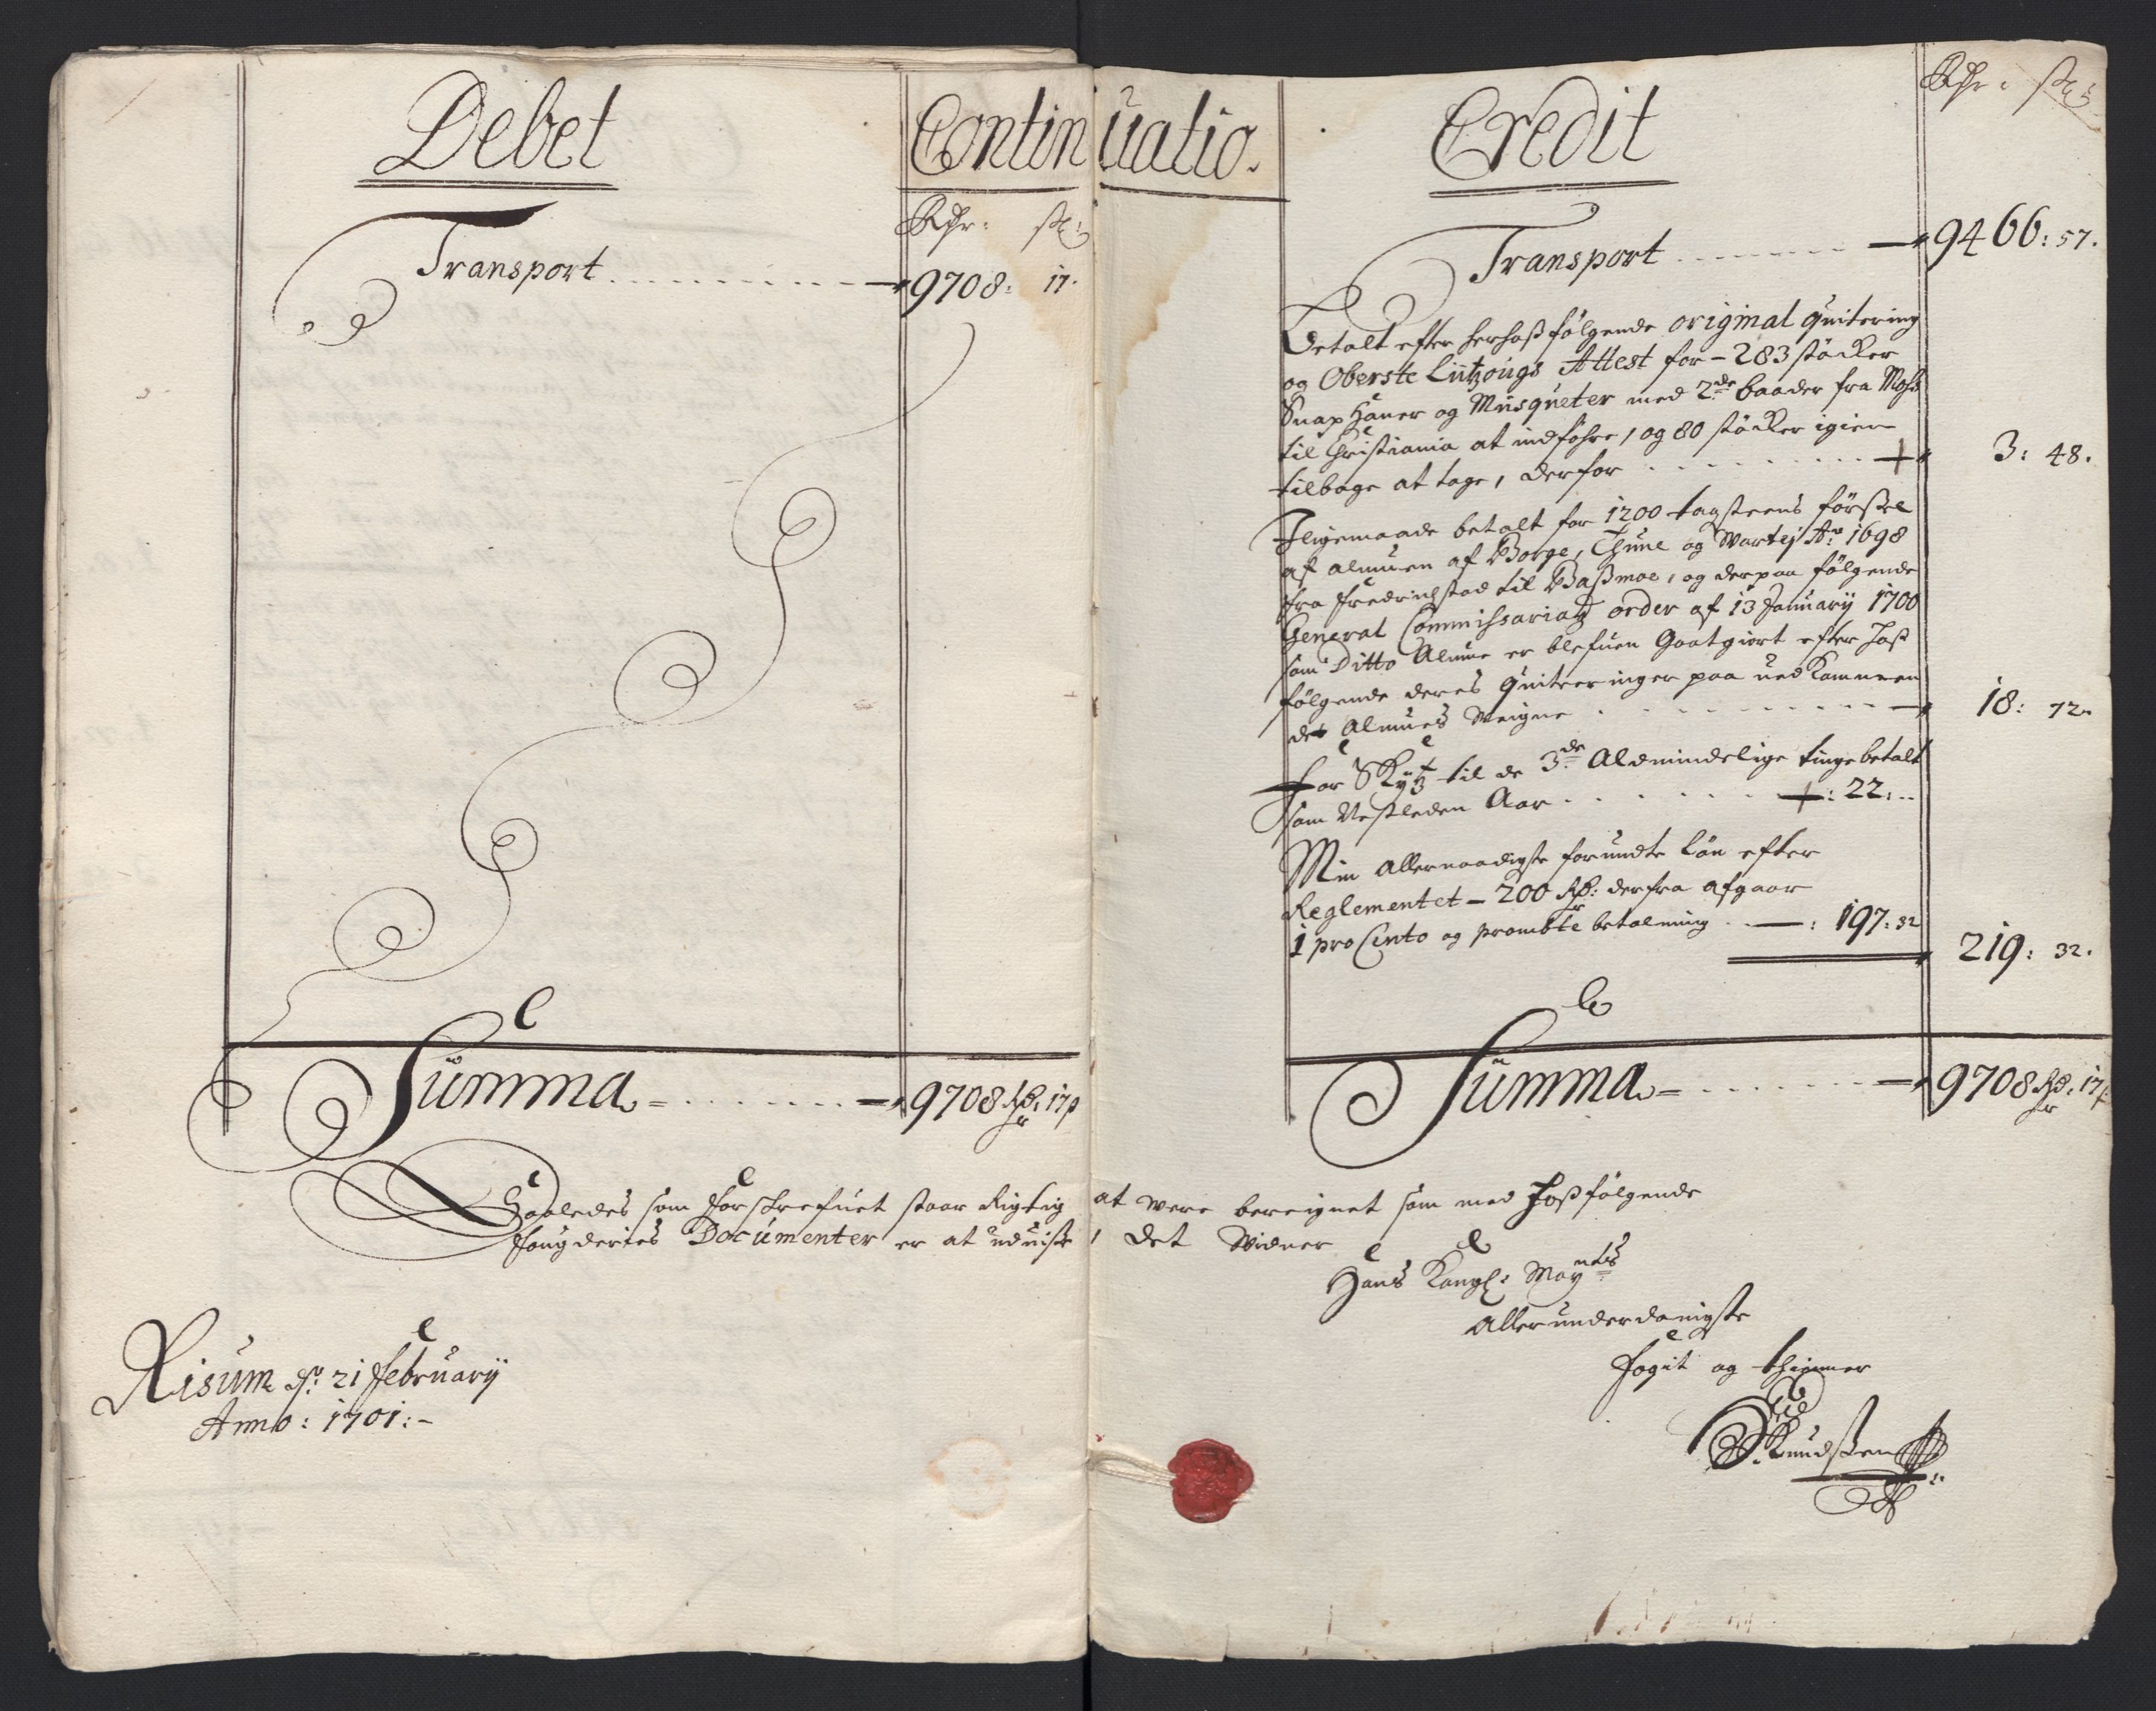 Debet
Continuatio.
Rdr: ß:
Transport 9708: 17.
Summa 9708 Rdr: 17 ß
Credit
Rdr: ß:
Transport 9466: 57.
Betalt efter herhoß følgende original quitering
og Oberste Lützougs Attest for - 283 støcker
Snaphaner og Musqueter med 2de baader fra Moss
til Christiania at indføhre, og 80 støcker igien
tilbage at tage, derfor 3: 48.
Iligemaade betalt for 1200 tagsteens førssel
af almuen af Borge, Thune og Wartej Ao 1698
fra Fredrichstad til Baßmoe, og derpaa følgende
General Commissariatz order af 13 January 1700
som Ditto Almue er blefuen Gaatgiort efter hoß
følgende deres Quiteringer paa ued kommen
des Almues Weigne 18: 72.
For Skytz til de 3de Aldmindelige tinge betalt
som Nestleden Aar : 22: -
Min allernaadigste forundte løn efter
Reglementet - 200 Rdr: derfra afgaar
1 pro Cento og prombte betalning : 197: 32
219: 32.
Summa 9708 Rdr: 17 ß
Saaledes som forschrefuet staar Rigtig at were bereignet som med hoßfølgende
fougderies Documenter er at uduise, det Widner
Hans Kongl: Mayntis
Allerunderdanigste
fogit og thienner
Knudssen
Risum dn: 21 February
Anno: 1701: -